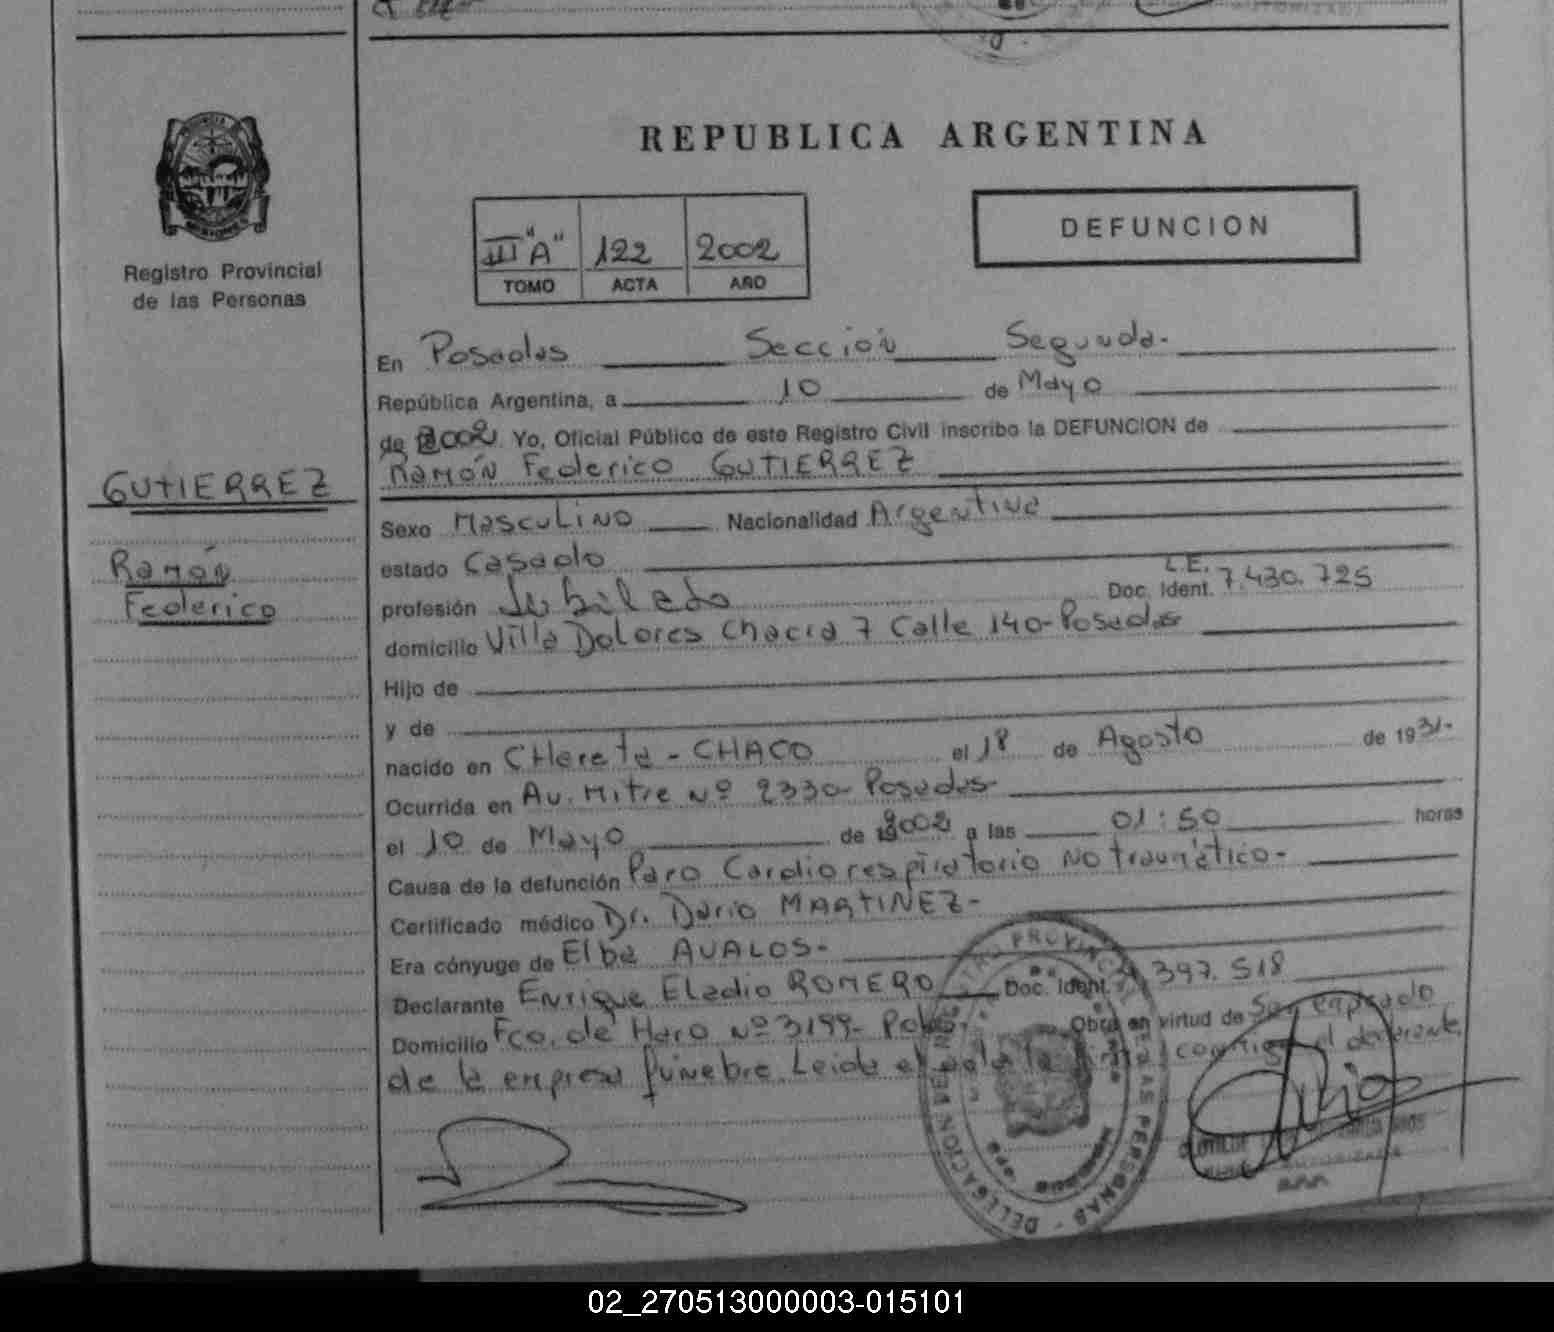 REPUBLICA ARGENTINA
Registro Provincial
de las Personas
III "A" 122 2002
TOMO ACTA AÑO
DEFUNCION
En Posadas Sección Segunda.
República Argentina, a 10 de Mayo
de 2002 Yo, Oficial Público de este Registro Civil inscribo la DEFUNCION de
Ramón Federico GUTIERREZ
GUTIERREZ
Ramón
Federico
Sexo Masculino Nacionalidad Argentina
estado Casado
profesión Jubilado L.E. Doc. Ident. 7.430.725
domicilio Villa Dolores Chacra 7 Calle 140-Posadas
Hijo de
y de
nacido en CHereta - CHACO el 18 de Agosto de 1931.
Ocurrida en Av. Mitre Nº 2330- Posadas-
el 10 de Mayo de 2002 a las 01:50 horas
Causa de la defunción Paro Cardiorespiratorio No traumático-
Certificado médico Dr. Dario MARTINEZ-
Era cónyuge de Elba AVALOS-
Declarante Enrique Eladio ROMERO Doc. Ident. 397.518
Domicilio Fco. de Haro Nº 3199- Obra en virtud de Ser empleado
de la empresa fúnebre. Leida el acta la conmigo el declarante
REGISTRO PROVINCIAL DE LAS PERSONAS - DELEGACION
AUTORIZADA
02_270513000003-015101